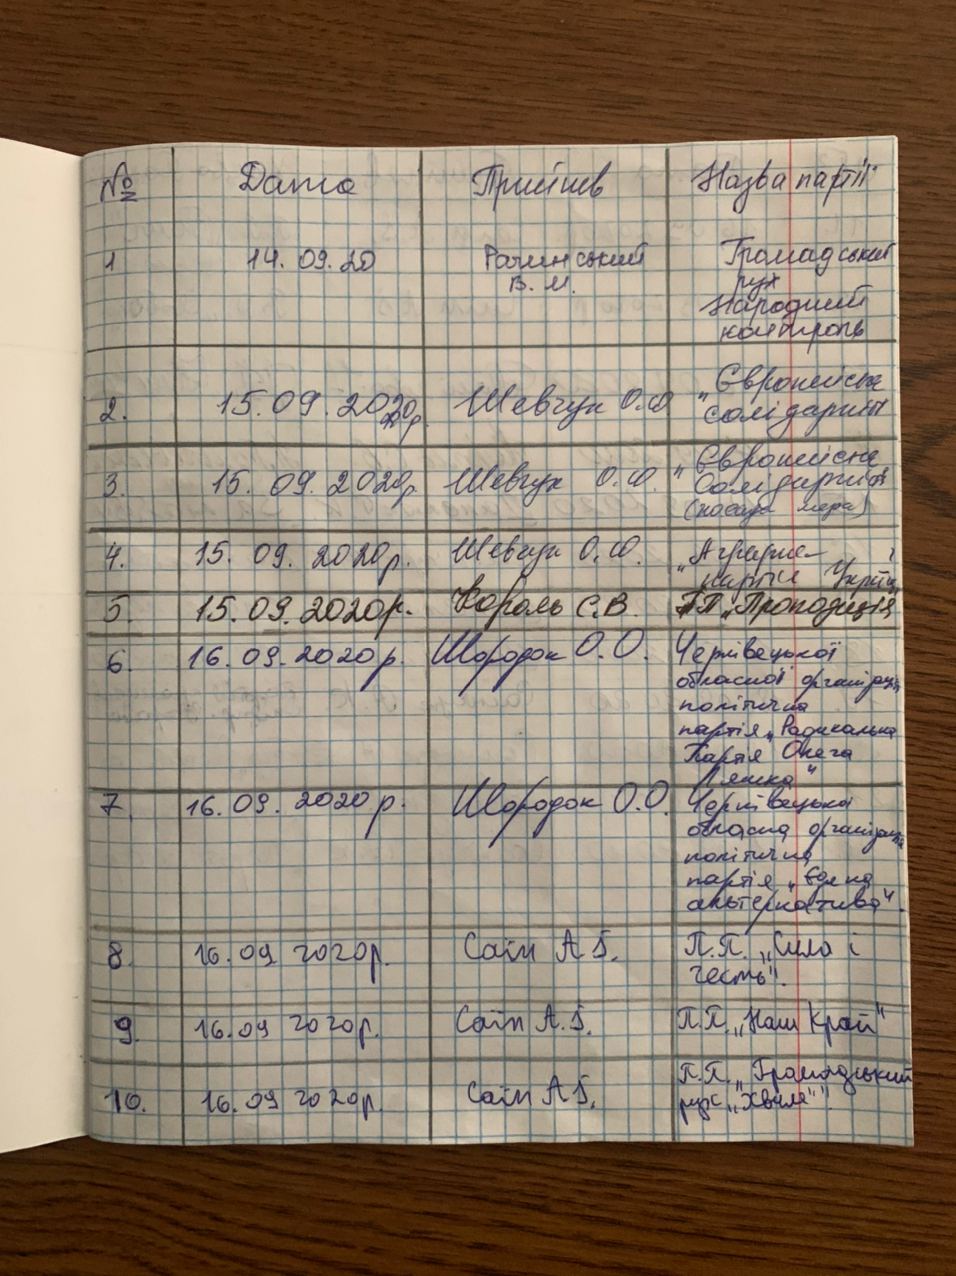 № Дата Прийняв Назва партії
1 14.09.20 Рачинський Громадський
В.М. рух
Народний
контроль
2. 15.09.2020р Шевчук О.Ю „Європейська
солідарність
3. 15.09.2020р Шевчук О.Ю. „Європейська
Солідарність
(посада мера)
4. 15.09.2020р. Шевчук О.Ю. „Аграрна
партія України
5. 15.09.2020р. Король С.В ПП „Пропозиція"
6. 16.09.2020р. Шородок О.О. Чернівецької
обласної організації
політична
партія „Радикальна
Партія Олега
Ляшка"
7. 16.09.2020р. Шородок О.О. Чернівецька
обласна організація
політична
партія „Єдина
альтернатива".
8. 16.09 2020р. Саїн А.Б. П.П. „Сила і
честь".
9. 16.09 2020р. Саїн А.Б. П.П. „Наш Край"
10. 16.09 2020р. Саїн А.Б. П.П. „Громадський
рух „Хвиля""